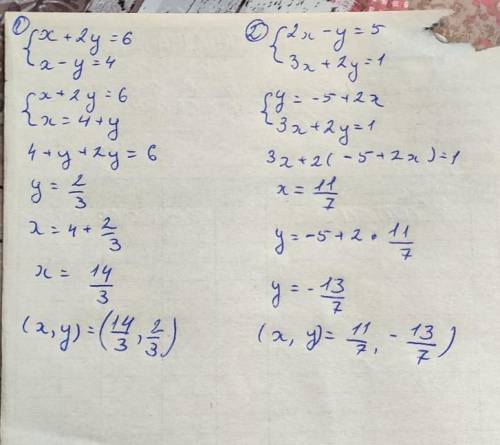 ① { x + 2y = 6
x - y = 4
{ x + 2y = 6
x = 4 + y
4 + y + 2y = 6
y = 2/3
x = 4 + 2/3
x = 14/3
(x, y) = (14/3, 2/3)
② { 2x - y = 5
3x + 2y = 1
{ y = -5 + 2x
3x + 2y = 1
3x + 2(-5 + 2x) = 1
x = 11/7
y = -5 + 2 · 11/7
y = -13/7
(x, y) = 11/7, -13/7)